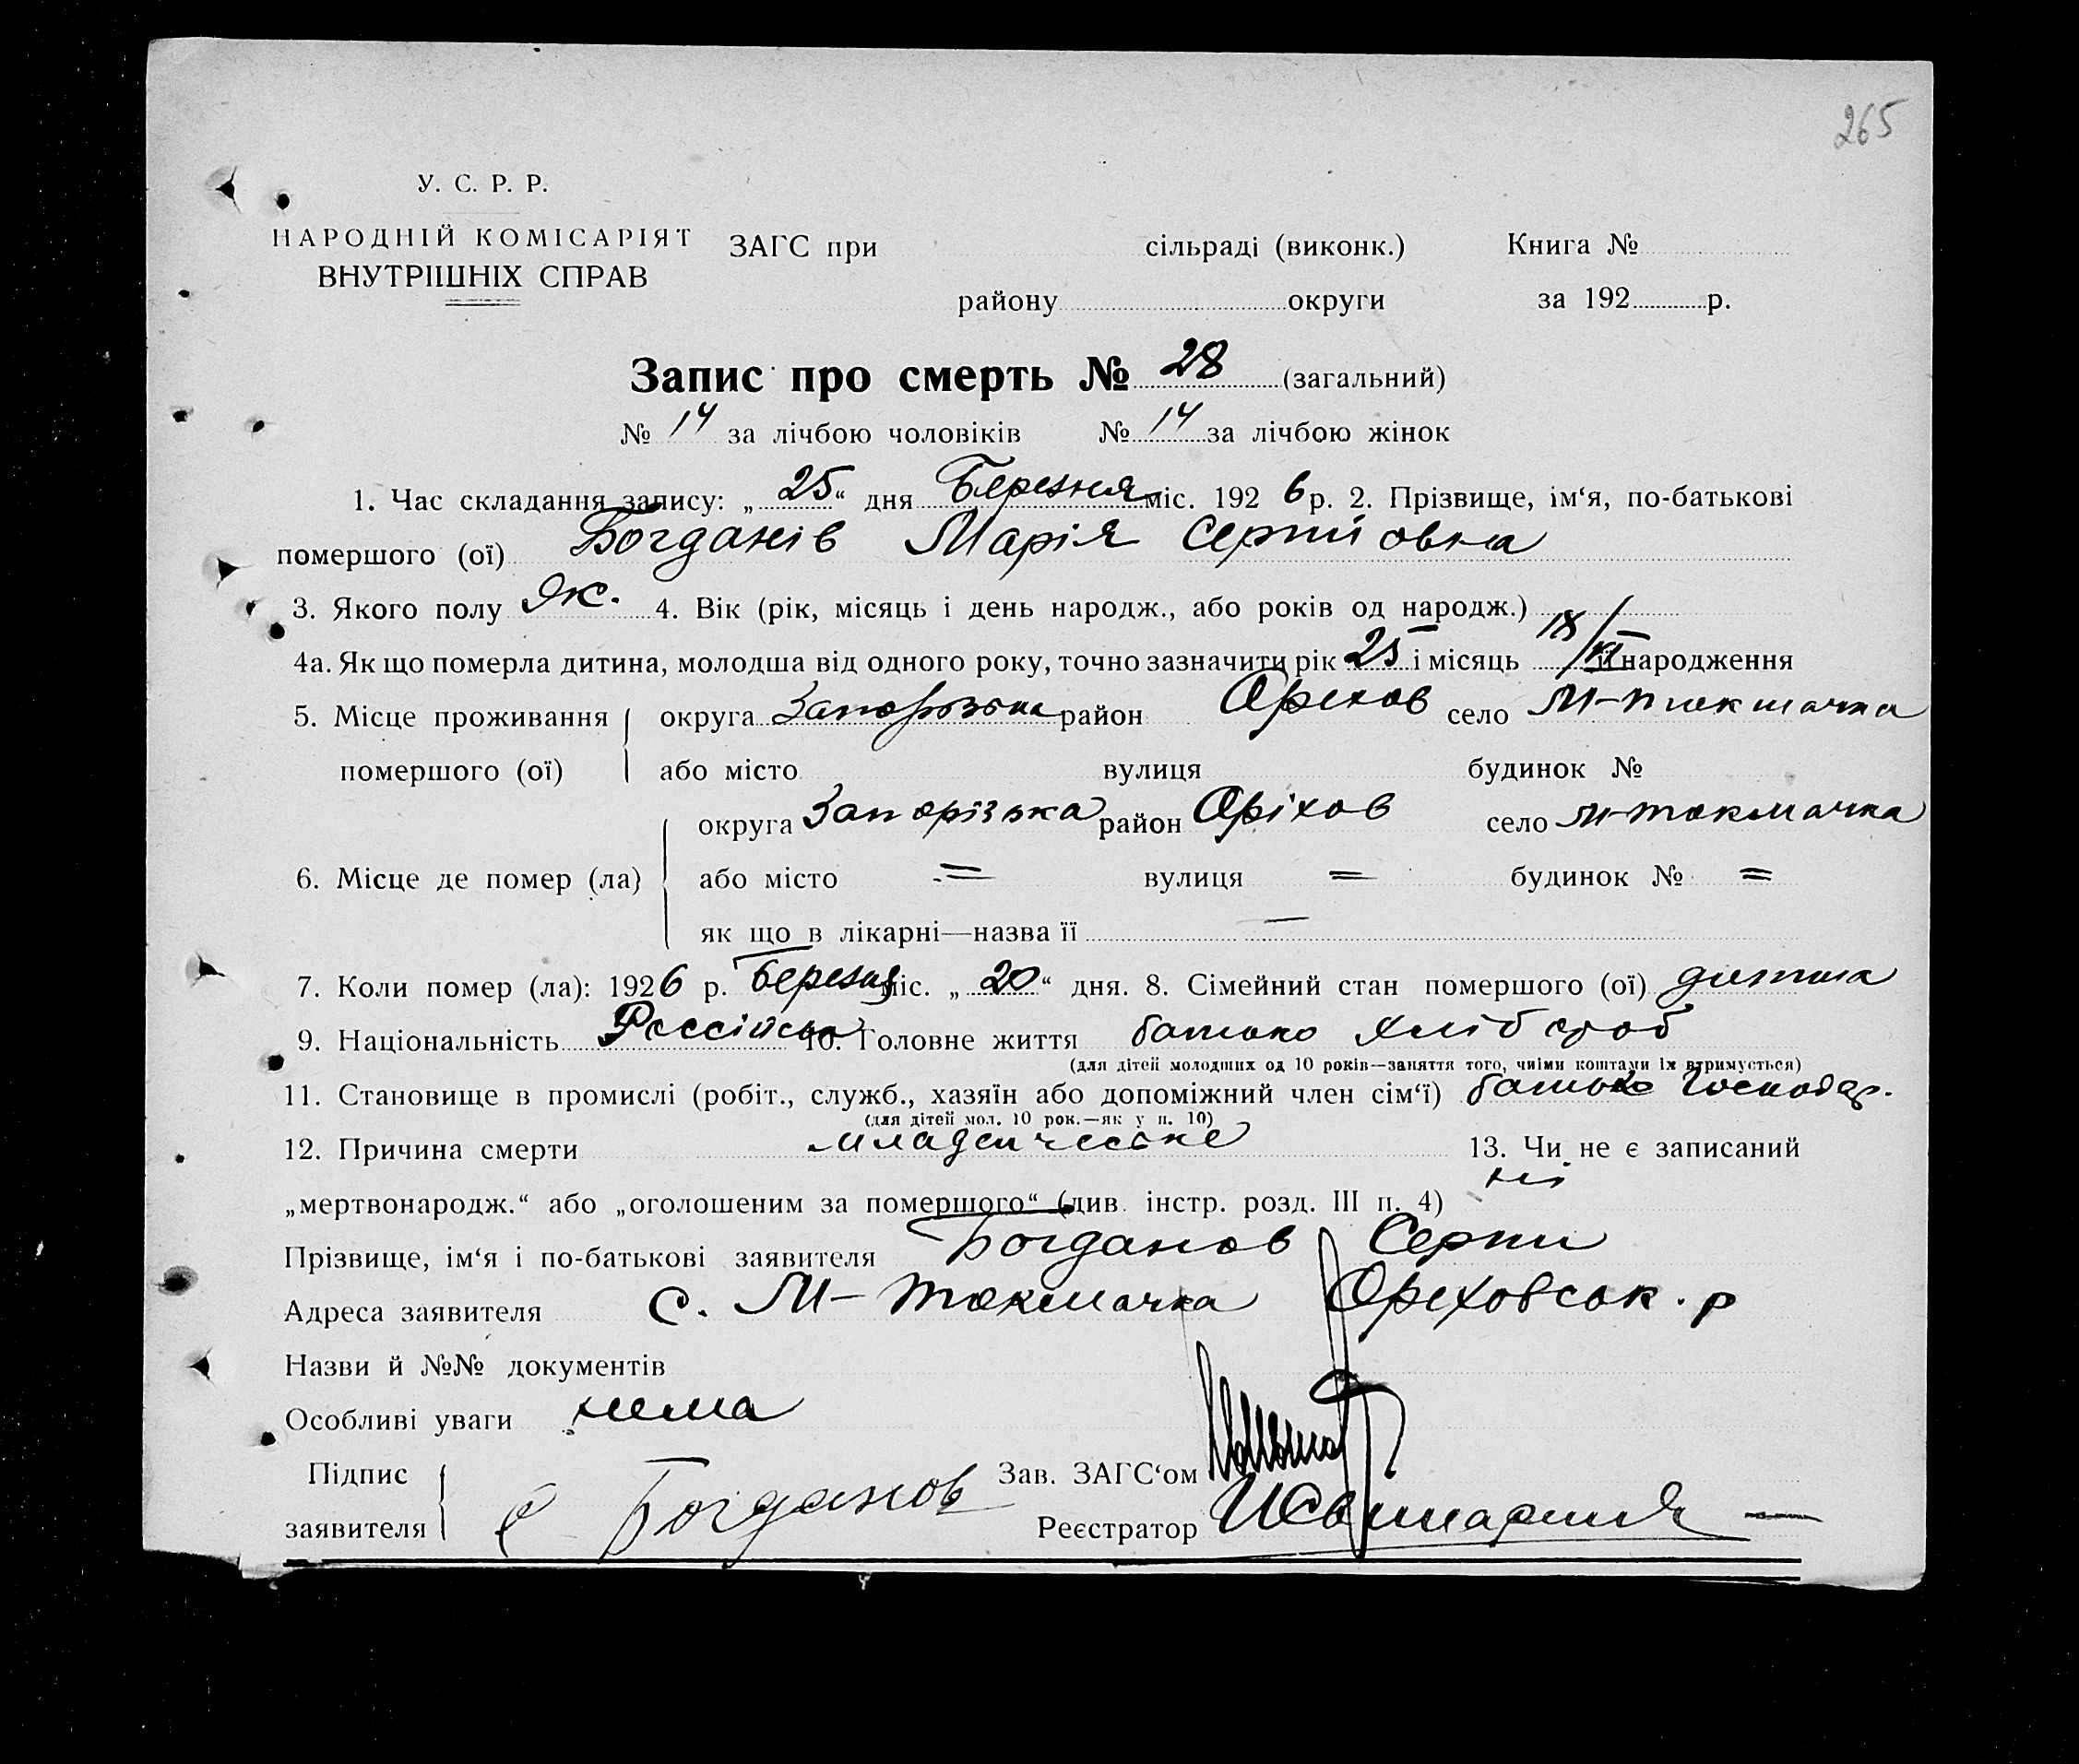 265
У. С. Р. Р.
НАРОДНІЙ КОМІСАРІЯТ
ВНУТРІШНІХ СПРАВ
ЗАГС при сільраді (виконк.) Книга №
району округи за 192 р.
Запис про смерть № 28 (загальний)
№ 14 за лічбою чоловіків № 14 за лічбою жінок
1. Час складання запису: „25“ дня Березня міс. 1926 р. 2. Прізвище, ім‘я, по-батькові
помершого (ої) Богданів Марія Сергійовна
3. Якого полу Ж. 4. Вік (рік, місяць і день народж., або років од народж.)
4а. Як що померла дитина, молодша від одного року, точно зазначити рік 25 і місяць 18/XI її народження
5. Місце проживання округа Запорізька район Орехов село М-Токмачка
помершого (ої) або місто вулиця будинок №
округа Запорізька район Оріхов село М-Токмачка
6. Місце де помер (ла) або місто = вулиця = будинок № =
як що в лікарні—назва її —
7. Коли помер (ла): 1926 р. Березня міс. „20“ дня. 8. Сімейний стан помершого (ої) дитина
9. Національність Россійська 10. Головне життя батько хлібороб
(для дітей молодших од 10 років—заняття того, чиїми коштами їх втримується)
11. Становище в промислі (робіт., служб., хазяїн або допоміжний член сім‘ї) батько господар.
(для дітей мол. 10 рок.—як у п. 10)
12. Причина смерти младенческе 13. Чи не є записаний
„мертвонародж.“ або „оголошеним за помершого“ (див. інстр. розд. III п. 4) ні
Прізвище, ім‘я і по-батькові заявителя Богданов Сергій
Адреса заявителя с. М-Токмачка Ореховськ. р
Назви й №№ документів
Особливі уваги нема
Підпис Зав. ЗАГС‘ом
заявителя С Богданов Реєстратор